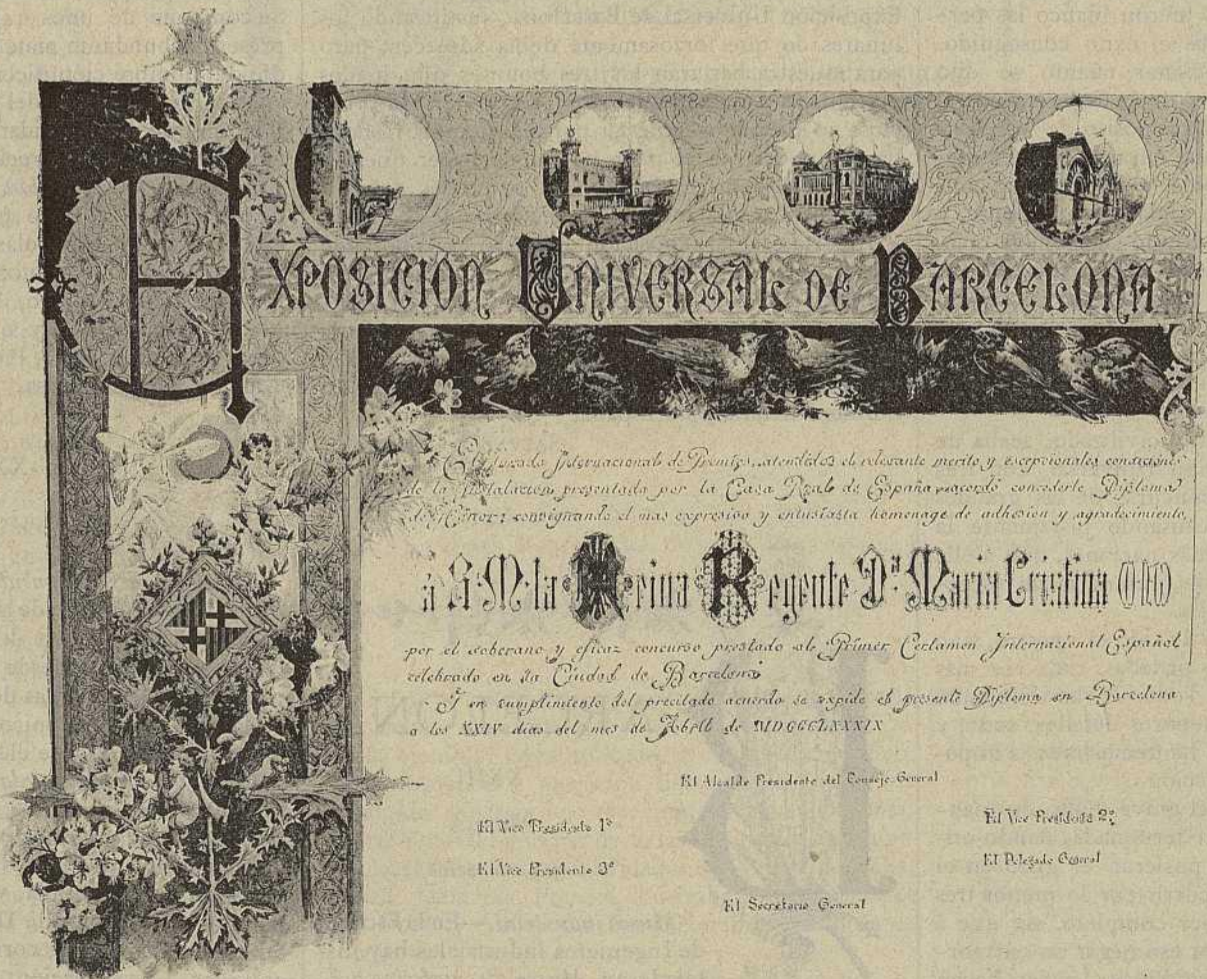 EXPOSICION UNIVERSAL DE BARCELONA
El Jurado Internacional de Premios, atendidos el relevante merito y escepcionales condiciones
de la Instalacion presentada por la Casa Real de España acordó concederle Diploma
de Honor; consignando el mas expresivo y entusiasta homenage de adhesion y agradecimiento,
á S. M. la Reina Regente Dª Maria Cristina
por el soberano y eficaz concurso prestado al Primer Certamen Internacional Español
celebrado en la Ciudad de Barcelona
Y en cumplimiento del precitado acuerdo se expide el presente Diploma en Barcelona
a los XXIV dias del mes de Abril de MDCCCLXXXIX
El Alcalde Presidente del Consejo General
El Vice Presidente 1º
El Vice Presidente 2º
El Vice Presidente 3º
El Delegado General
El Secretario General